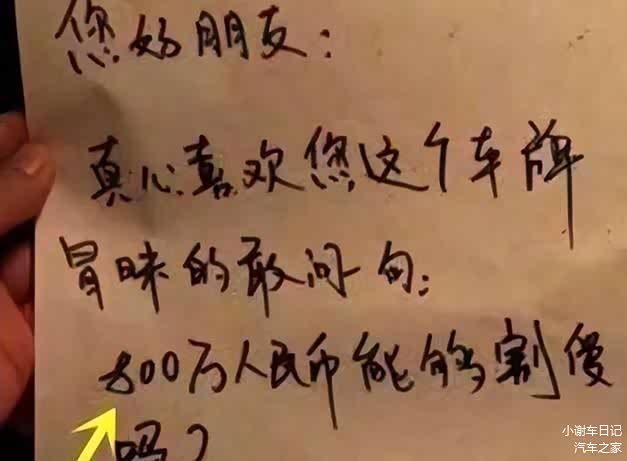 您好朋友:
真心喜欢您这个车牌
冒昧的敢问一句:
800万人民币能够割爱
吗?
小谢车日记
汽车之家